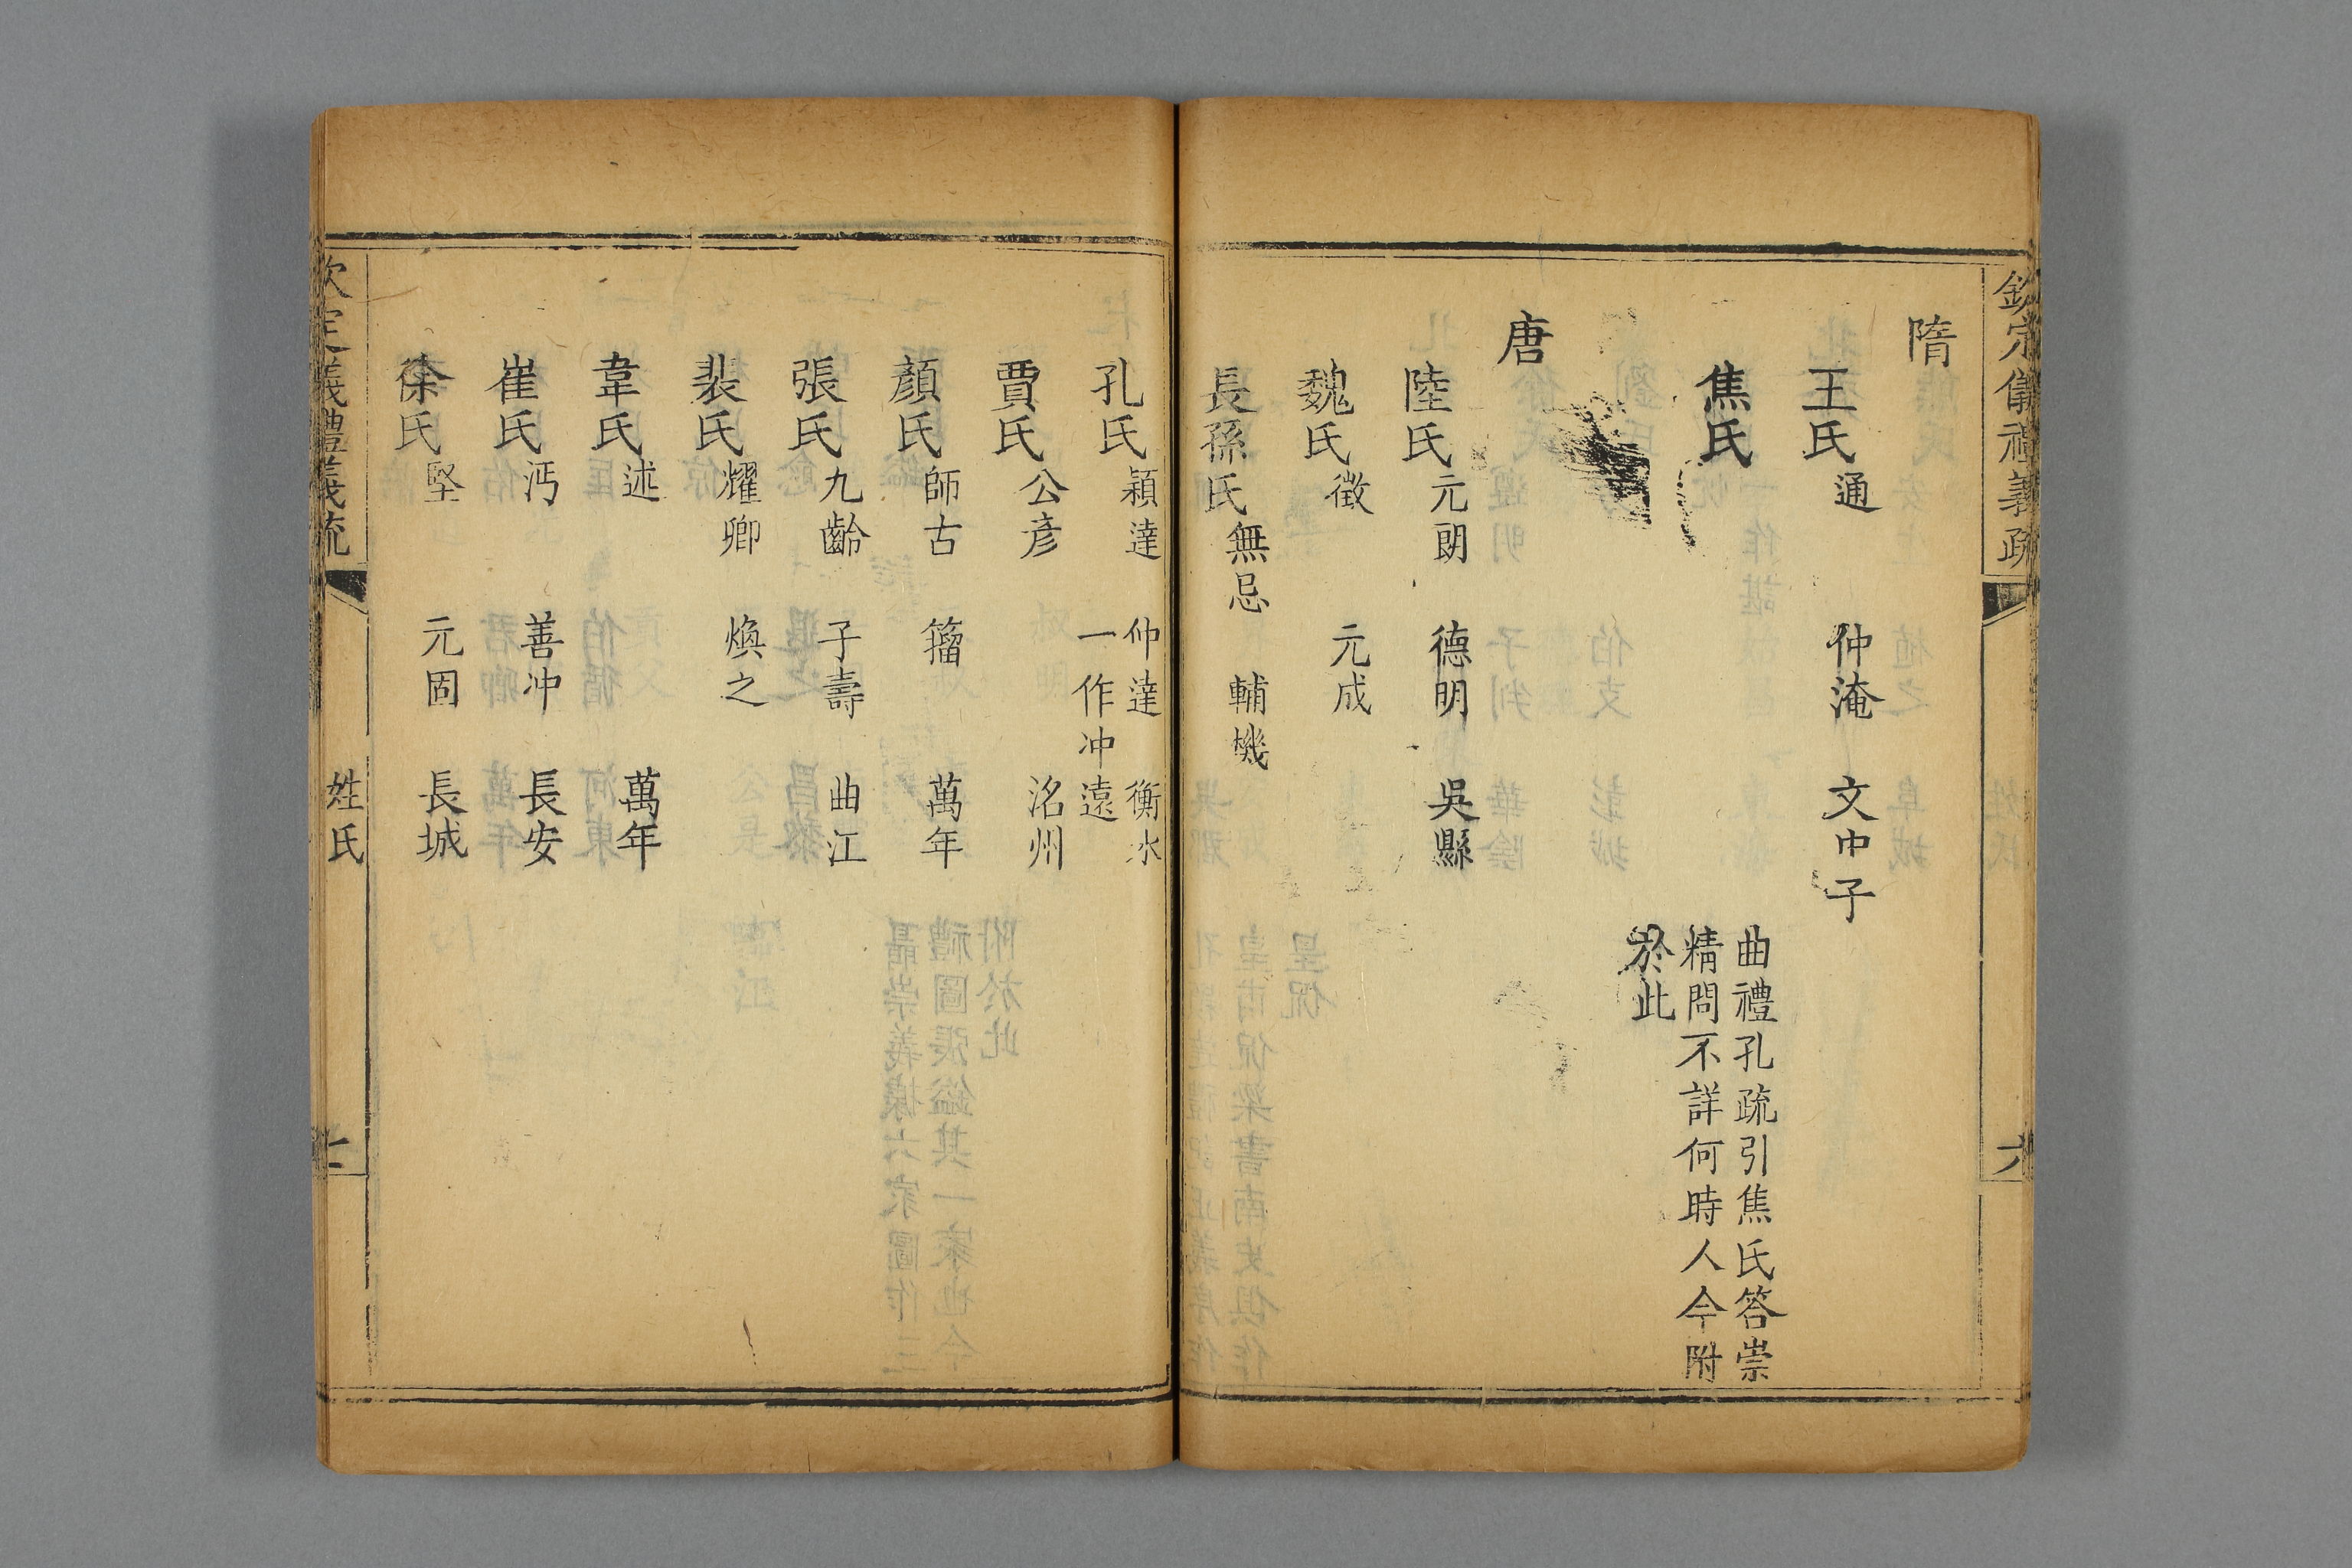 欽定儀禮義疏 六
隋
王氏 通 仲淹 文中子
焦氏 曲禮孔疏引焦氏答崇
精問不詳何時人今附
於此
唐
陸氏 元朗 德明 吳縣
魏氏 徵 元成
長孫氏 無忌 輔機
孔氏 穎達 仲達 衡水
一作冲遠
賈氏 公彥 洺州
顏氏 師古 籀 萬年
張氏 九齡 子壽 曲江
裴氏 耀卿 煥之
韋氏 述 萬年
崔氏 沔 善冲 長安
徐氏 堅 元固 長城
欽定義禮義疏 姓氏